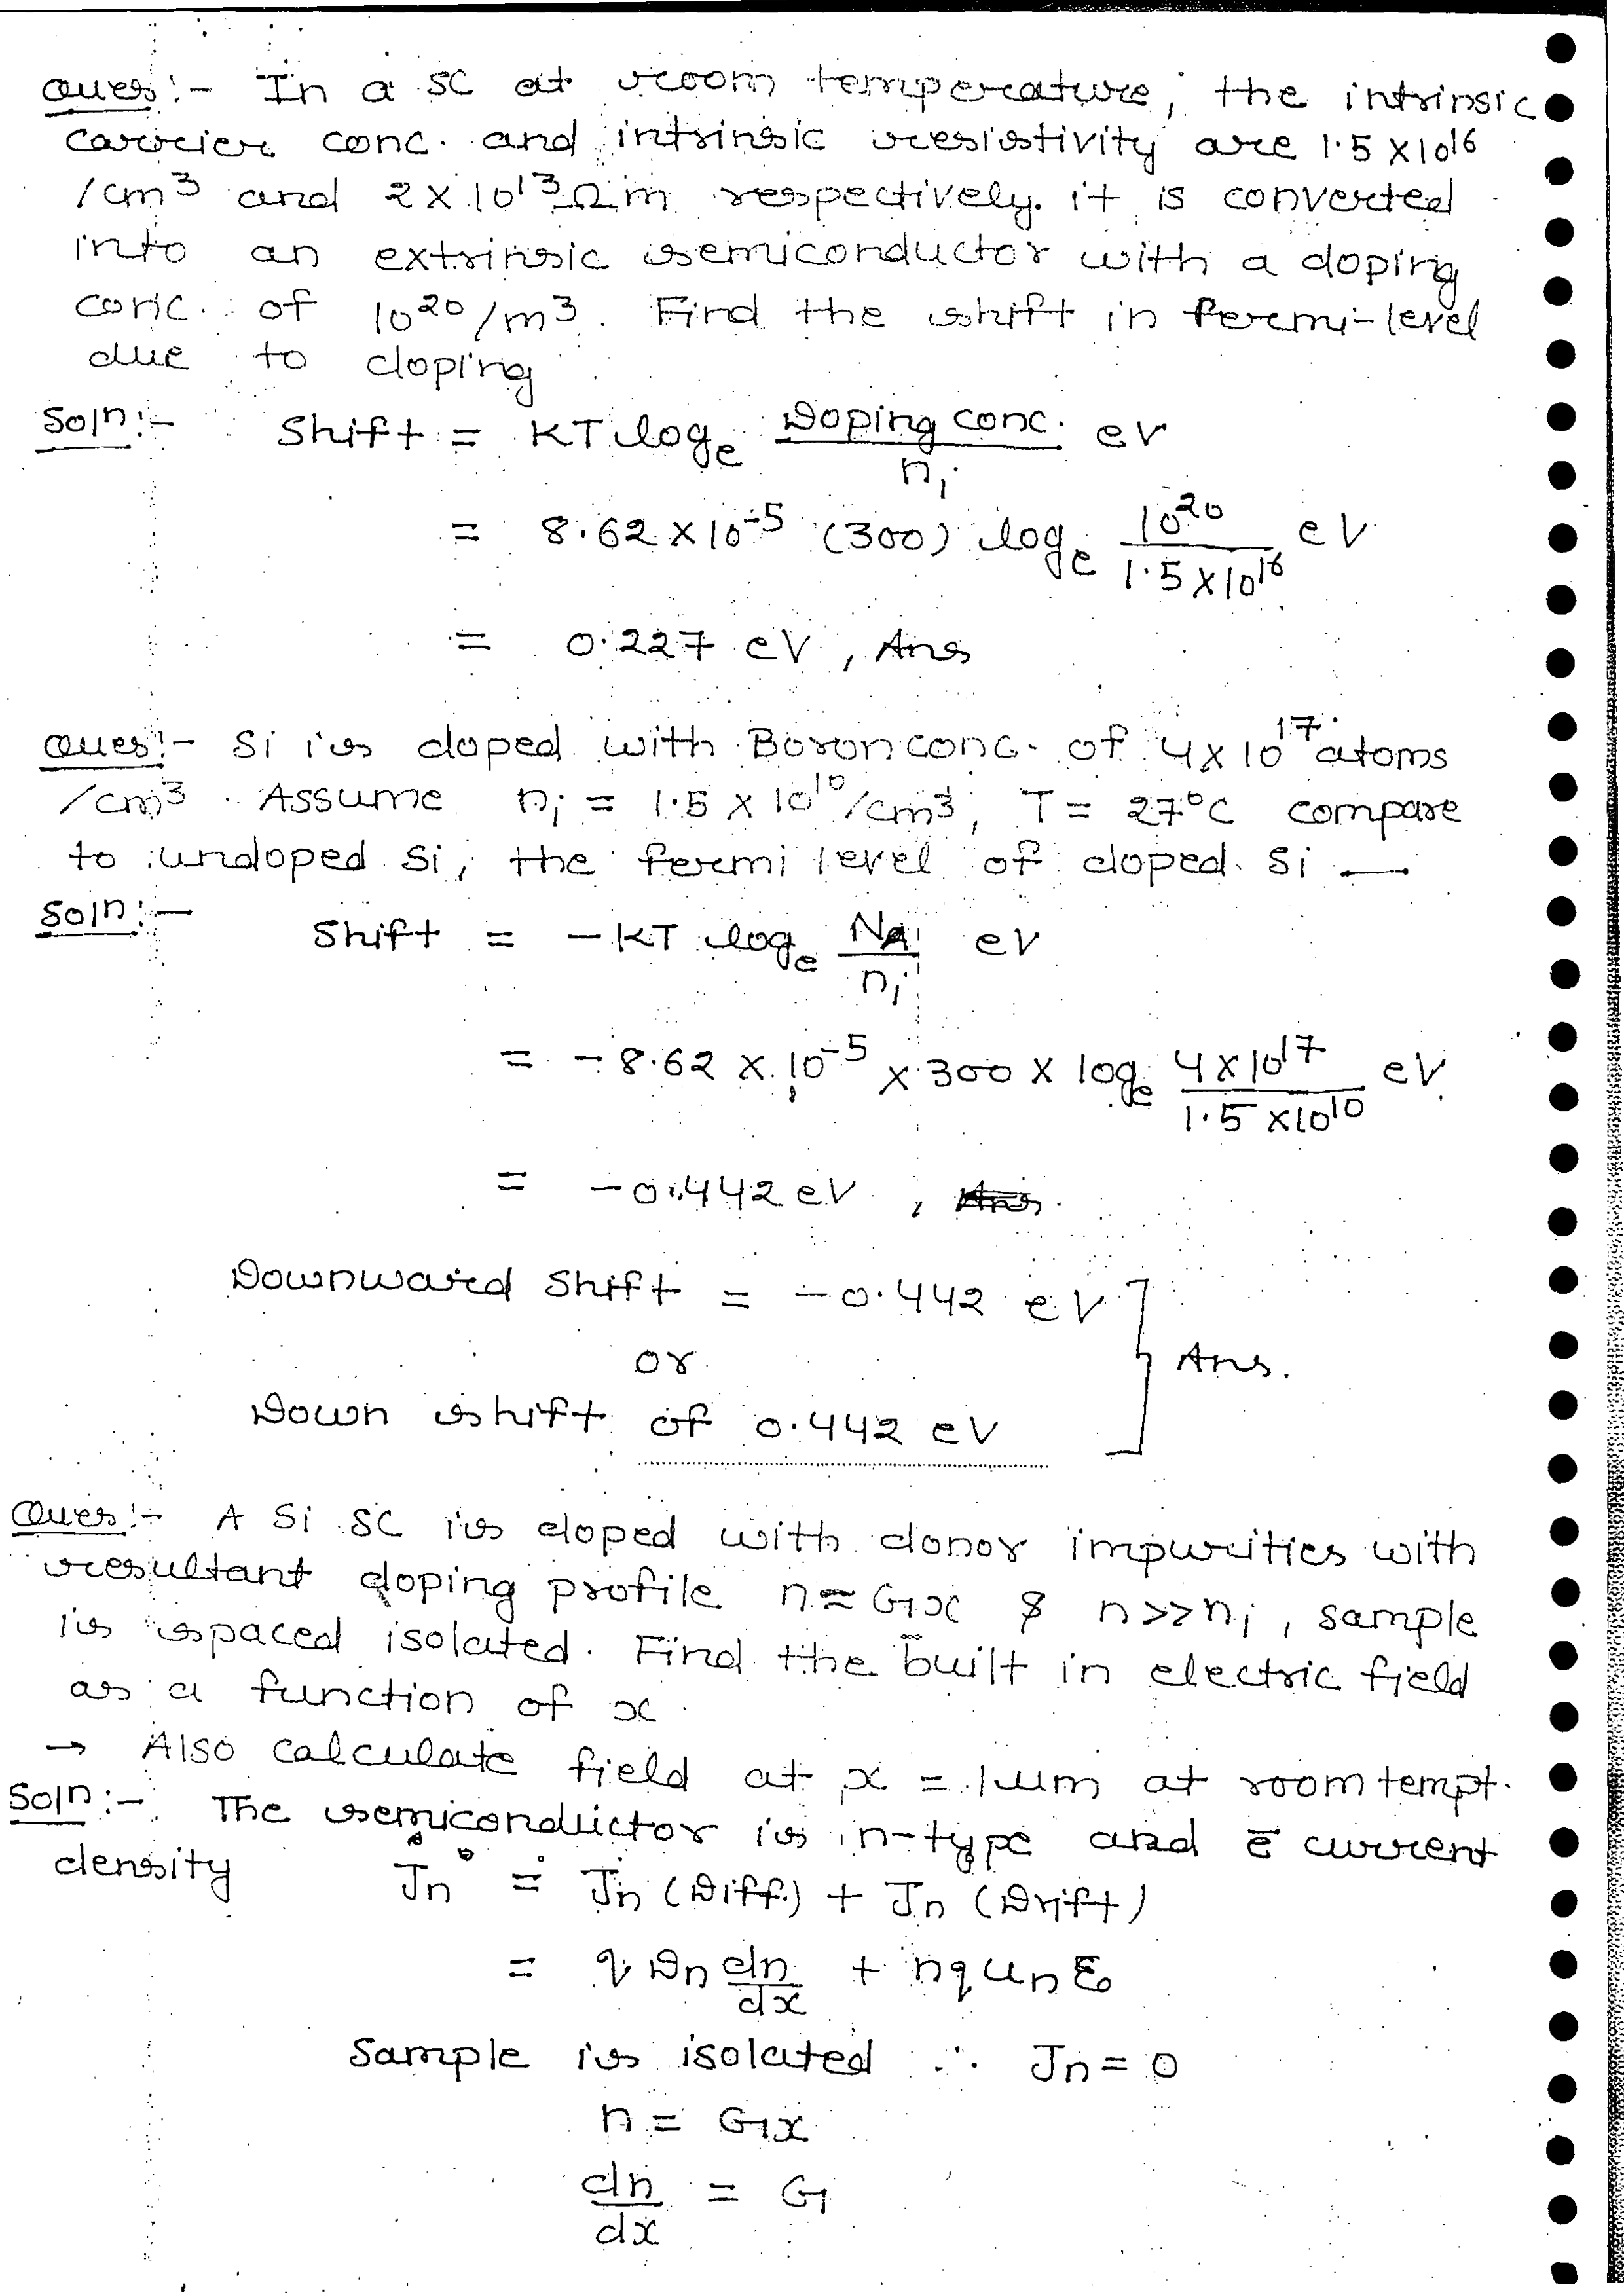 Ques:- In a SC at room temperature, the intrinsic
carrier conc. and intrinsic resistivity are 1.5×10¹⁶
/cm³ and 2×10¹³Ωm respectively. it is converted
into an extrinsic semiconductor with a doping
conc. of 10²⁰/m³. Find the shift in fermi-level
due to doping
Soln:- Shift = KT logₑ Doping conc./nᵢ eV
= 8.62×10⁻⁵ (300) logₑ 10²⁰/1.5×10¹⁶ eV
= 0.227 eV, Ans
Ques:- Si is doped with Boron conc. of 4×10¹⁷ atoms
/cm³. Assume nᵢ = 1.5×10¹⁰/cm³, T = 27°C compare
to undoped Si, the fermi level of doped Si —
Soln:- Shift = -KT logₑ N_A/nᵢ eV
= -8.62×10⁻⁵ × 300 × logₑ 4×10¹⁷/1.5×10¹⁰ eV
= -0.442 eV, Ans.
Downward Shift = -0.442 eV
or
Ans.
Down shift of 0.442 eV
Ques:- A Si SC is doped with donor impurities with
resultant doping profile n = Gx & n>>nᵢ, sample
is spaced isolated. Find the built in electric field
as a function of x.
→ Also calculate field at x = 1μm at room tempt.
Soln:- The semiconductor is n-type and e̅ current
density Jn = Jn (Diff.) + Jn (Drift)
= q Dn dn/dx + nqμnE
Sample is isolated ∴ Jn = 0
n = Gx
dn/dx = G